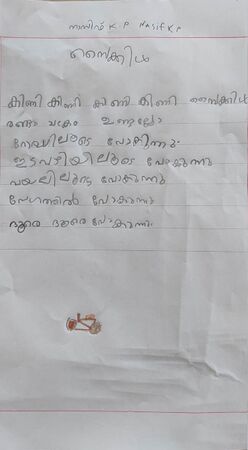 നസീഫ് K P NASIF K P
സൈക്കിൾ
കിണി കിണി കിണി കിണി സൈക്കിൾ
രണ്ടാ ചക്രം ഉണ്ടല്ലോ
റോഡിലൂടെ പോകുന്നു.
ഇടവഴിയിലൂടെ പോകുന്നു
വയലിലൂടെ പോകുന്നു
വേഗത്തിൽ പോകുന്നു
ദൂരെ ദൂരെ പോകുന്നു.